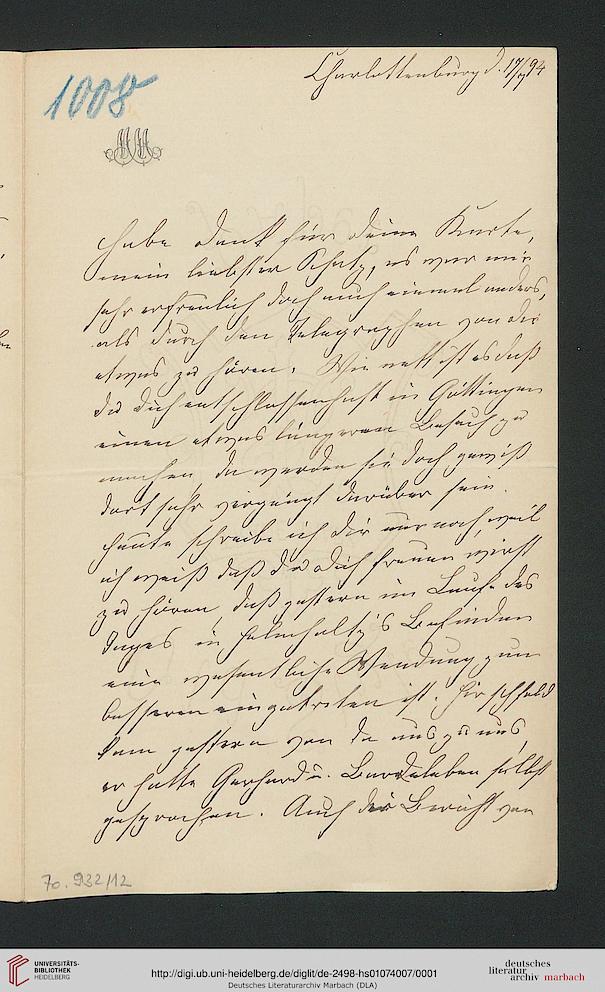 1008
Charlottenburg d. 17/7 94
Habe Dank für deine Karte,
mein liebster Schatz, es war mir
sehr erfreulich doch auch einmal anders,
als durch den Telegraphen von dir
etwas zu hören. Wie nett ist es daß
du dich entschlossen hast in Göttingen
einen etwas längeren Besuch zu
machen, da werden sie doch gewiß
dort sehr vergnügt darüber sein.
Heute schreibe ich dir nur noch, weil
ich weiß daß du dich freuen wirst
zu hören, daß gestern im Laufe des
Tages in Helmholtz's Befinden
eine wesentliche Wendung zum
besseren eingetreten ist. Hirschfeld
kam gestern von da aus zu uns
er hatte Gerhard u. Bardeleben selbst
gesprochen. Auch der Bericht von
70.932/12
UNIVERSITÄTS-
BIBLIOTHEK
HEIDELBERG
http://digi.ub.uni-heidelberg.de/diglit/de-2498-hs01074007/0001
Deutsches Literaturarchiv Marbach (DLA)
deutsches
literatur
archiv marbach